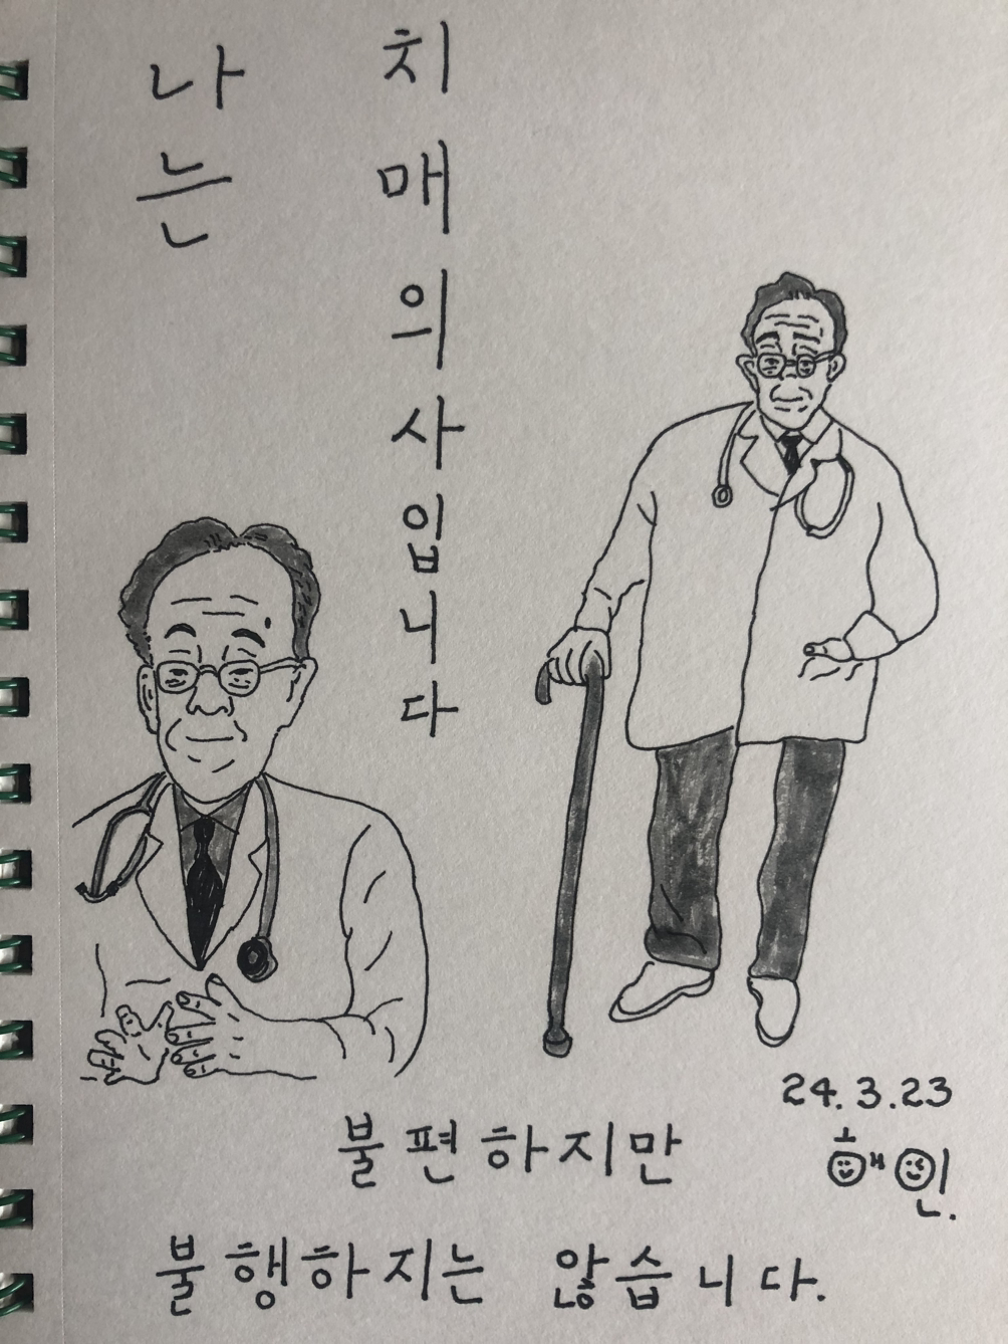 나는
치매의사입니다
24.3.23
해인.
불편하지만
불행하지는 않습니다.